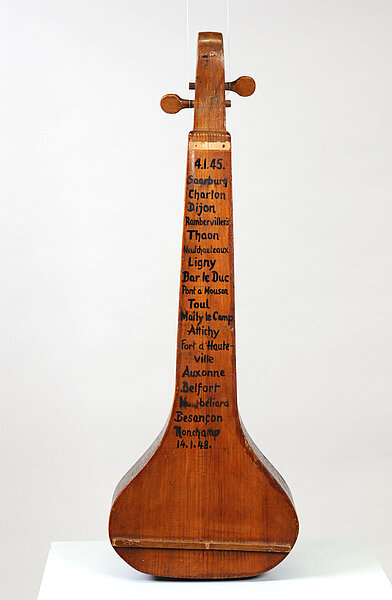 4.1.45.
Saarburg
Charton
Dijon
Rambervillers
Thaon
Neufchauteaux
Ligny
Bar le Duc
Pont a Mouson
Toul
Mailly le Camp
Attichy
Fort d Haute-
ville
Auxonne
Belfort
Montbéliard
Besançon
Ronchamp
14.1.48.